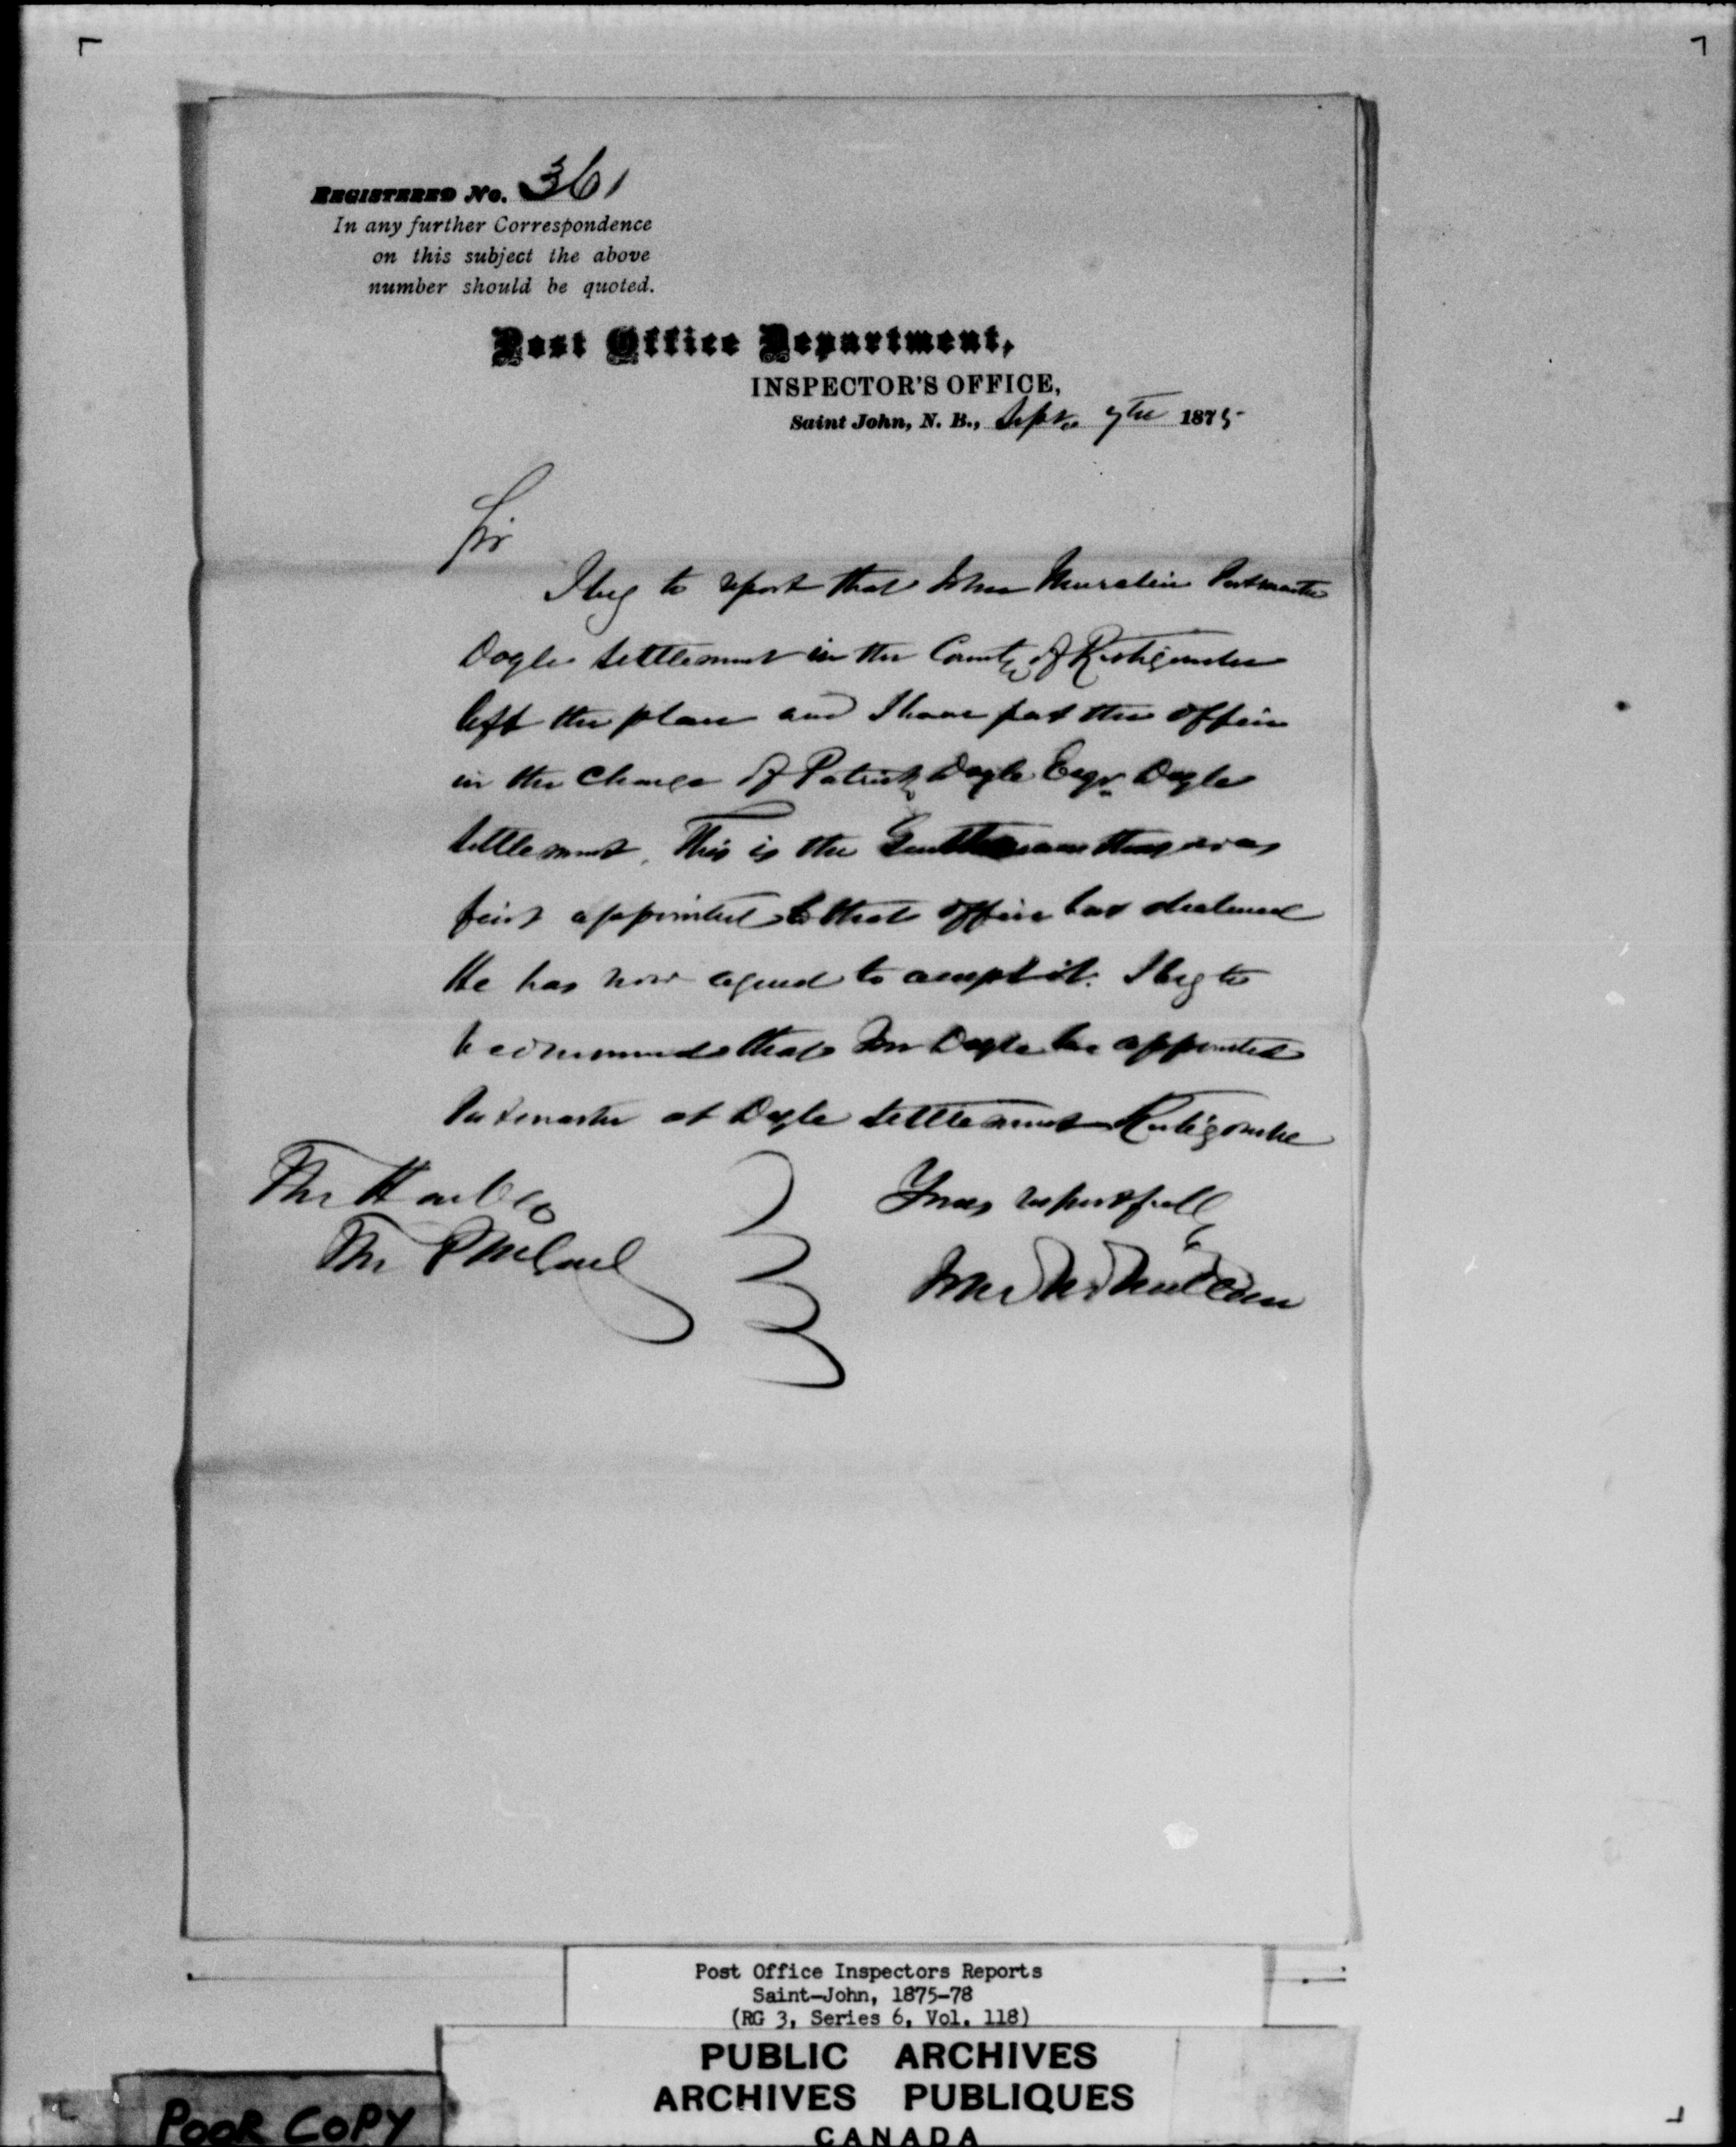 REGISTERED No. 361
In any further Correspondence
on this subject the above
number should be quoted.
Post Office Department,
INSPECTOR'S OFFICE,
Saint John, N. B., Septr 7th 1875
Sir
I beg to report that John Postmaster
Doyle Settlement in the County of Restigouche
left the place and I have put the office
in the charge of Patrick Doyle Esqr Doyle
Settlement. This is the Gentleman that was
first appointed to that office but declined
He has now agreed to accept it. I beg to
recommend that Mr Doyle be appointed
Postmaster at Doyle Settlement Restigouche
The Honble
The P M General
Yours respectfully
John McMillan
Post Office Inspectors Reports
Saint-John, 1875-78
(RG 3, Series 6, Vol. 118)
PUBLIC ARCHIVES
ARCHIVES PUBLIQUES
CANADA
POOR COPY